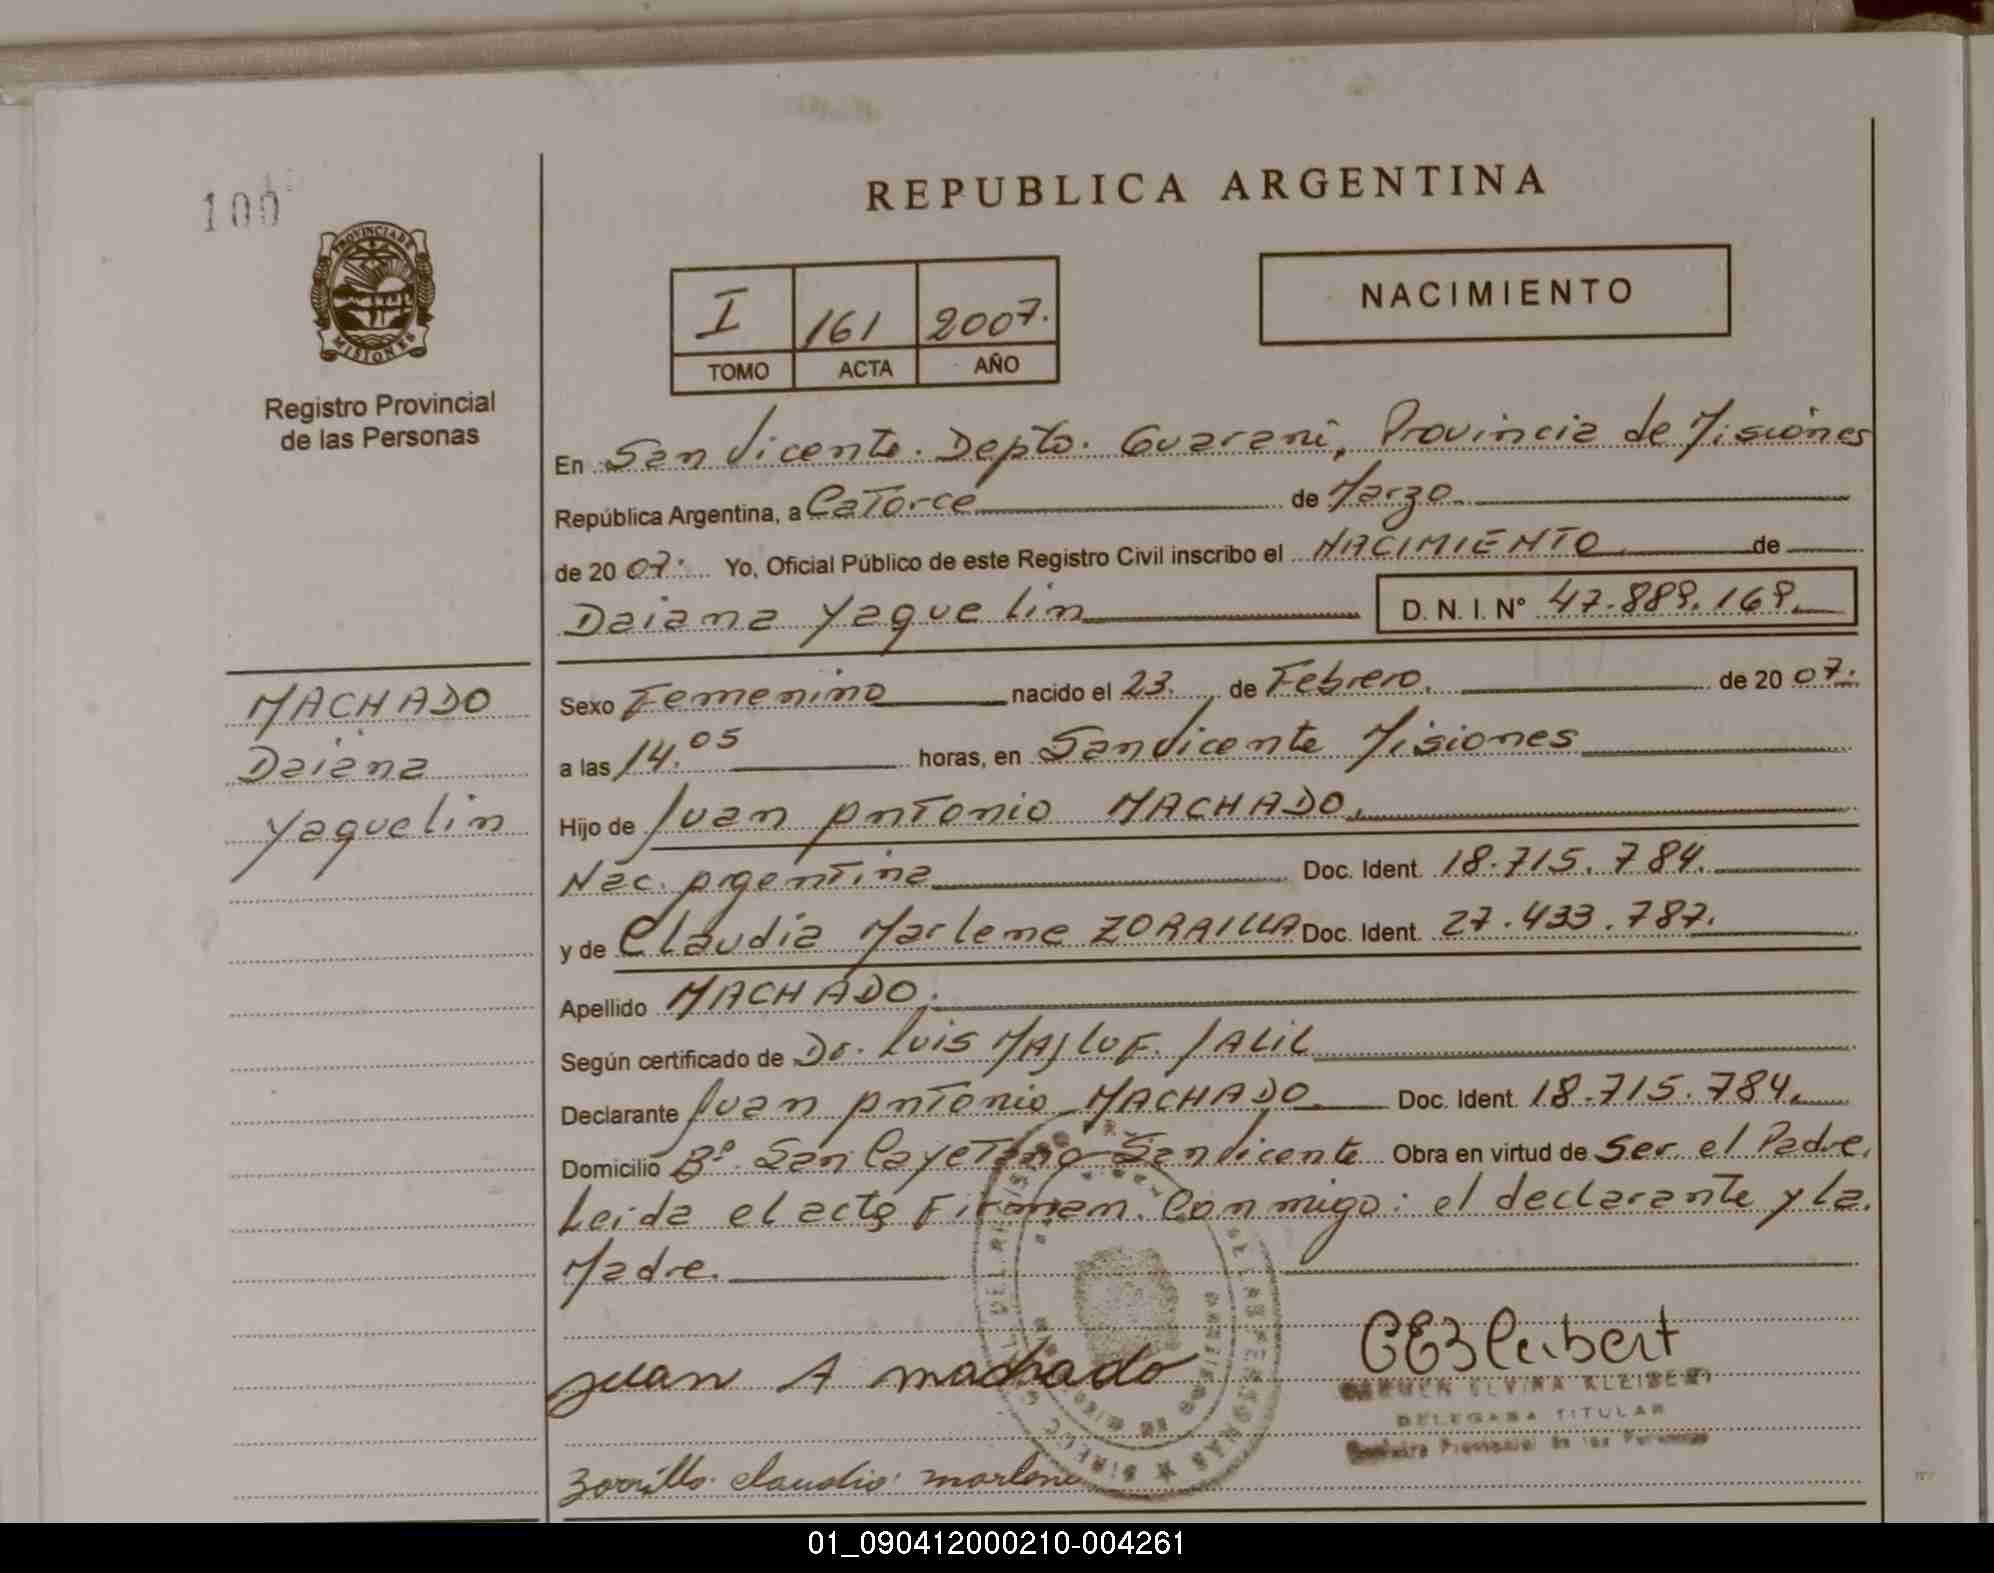 100
REPUBLICA ARGENTINA
PROVINCIA DE
MISIONES
Registro Provincial
de las Personas
I 161 2007.
TOMO ACTA AÑO
NACIMIENTO
En San Vicente. Depto. Guaraní, Provincia de Misiones
República Argentina, a Catorce de Marzo
de 2007. Yo, Oficial Público de este Registro Civil inscribo el NACIMIENTO de
Daiana Yaquelin D. N. I. N° 47.889.169.
MACHADO
Daiana
Yaquelin
Sexo Femenino nacido el 23. de Febrero. de 2007.
a las 14.05 horas, en San Vicente Misiones
Hijo de Juan Antonio MACHADO.
Nac. Argentina Doc. Ident. 18.715.784.
y de Claudia Marlene ZORRILLA Doc. Ident. 27.433.787.
Apellido MACHADO.
Según certificado de Dr. Luis MAJLUF. JALIL
Declarante Juan Antonio MACHADO. Doc. Ident. 18.715.784.
Domicilio B° San Cayetano San Vicente Obra en virtud de Ser el Padre.
Leida el acta Firman Conmigo: el declarante y la.
Madre.
Juan A machado
CEKleibert
CARMEN ELVIRA KLEIBERT
DELEGADA TITULAR
Provincial de las Personas
Zorrilla claudia marlene
01_090412000210-004261